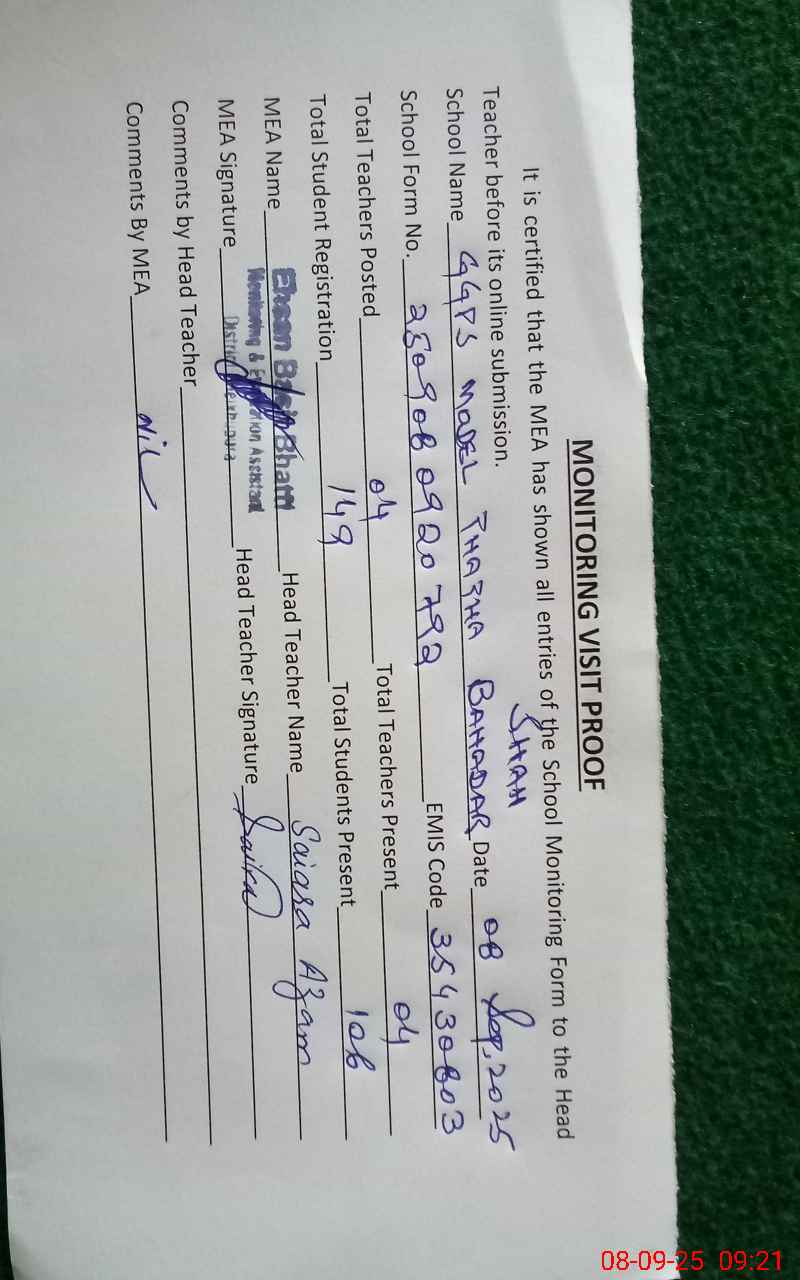 MONITORING VISIT PROOF
It is certified that the MEA has shown all entries of the School Monitoring Form to the Head
Teacher before its online submission.
SHAH
School Name GGPS MODEL THATHA BAHADAR Date 08 Sep, 2025
School Form No. 250908092079 2 EMIS Code 35430803
Total Teachers Posted 04 Total Teachers Present 04
Total Student Registration 149 Total Students Present 106
MEA Name Ehsan Basir Bhatti Head Teacher Name Saiqra Azam
Monitoring & Evaluation Assistant
MEA Signature District Head Teacher Signature
Comments by Head Teacher
Comments By MEA Nil
08-09-25 09:21